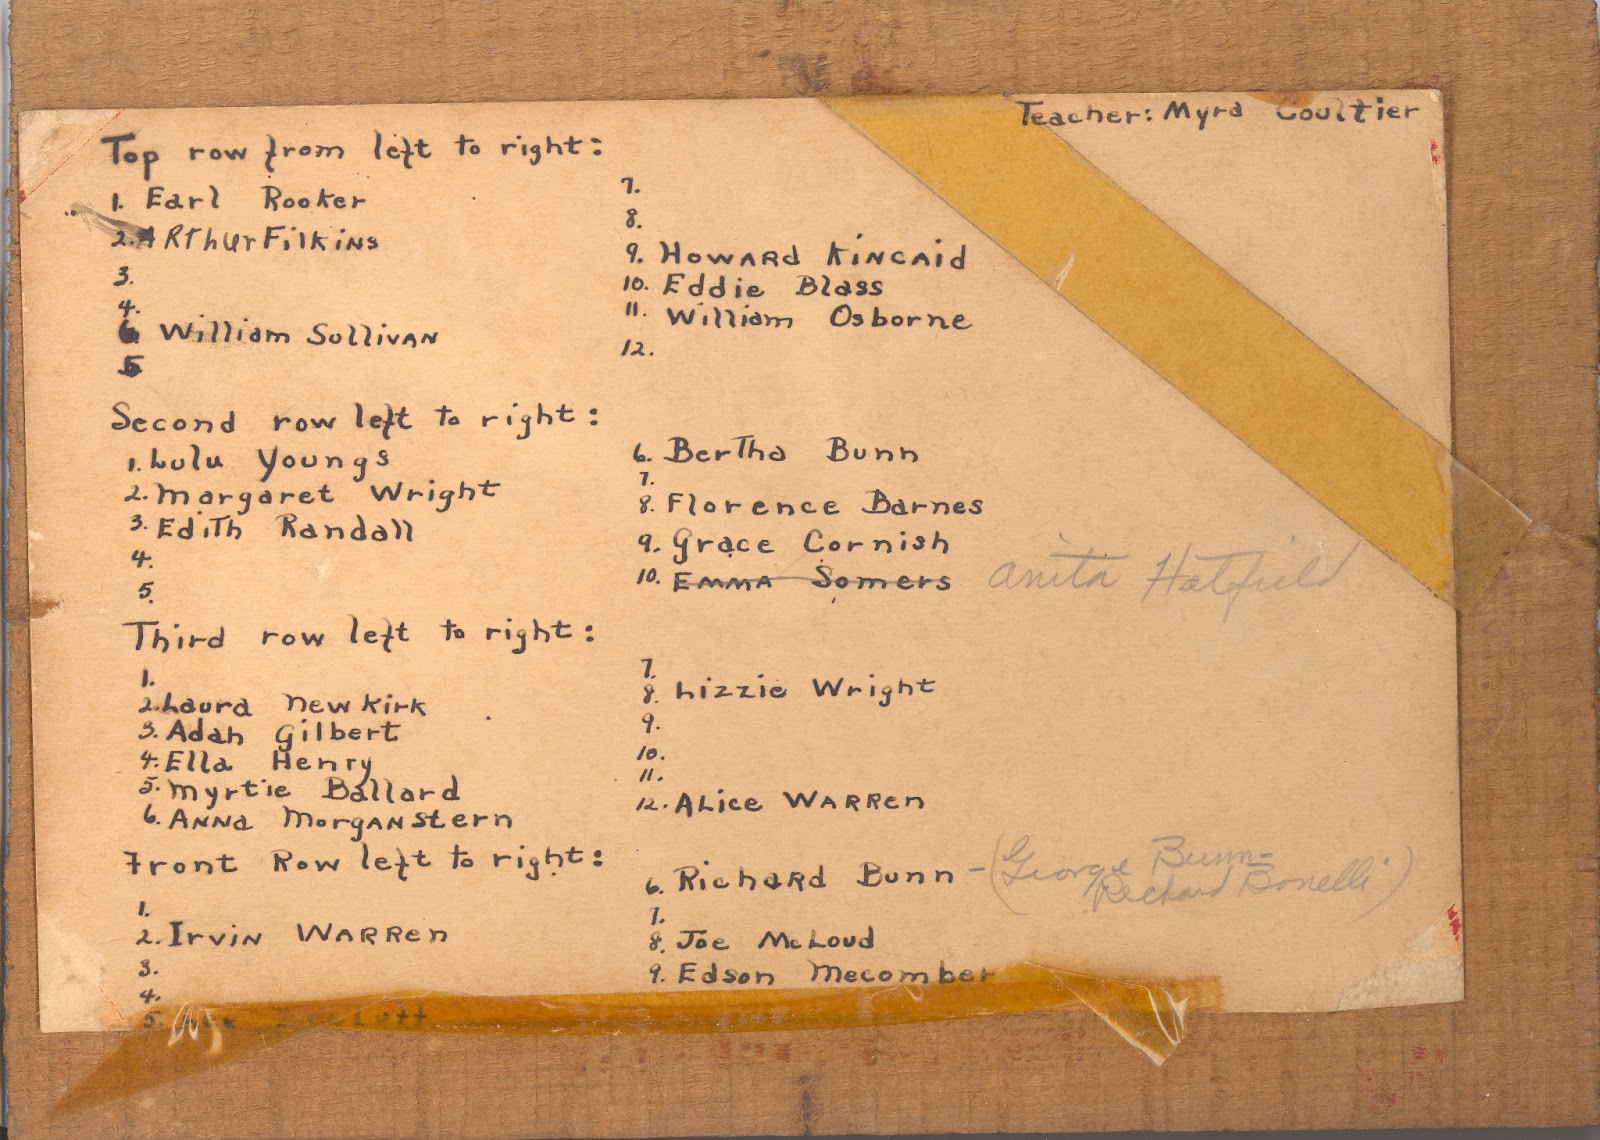 Teacher: Myra Coultier
Top row from left to right:
1. Earl Rooker
2. Arthur Filkins
3.
4.
6 William Sullivan
5
7.
8.
9. Howard Kincaid
10. Eddie Blass
11. William Osborne
12.
Second row left to right:
1. Lulu Youngs
2. Margaret Wright
3. Edith Randall
4.
5.
6. Bertha Bunn
7.
8. Florence Barnes
9. Grace Cornish
10. Emma Somers Anita Hatfield
Third row left to right:
1.
2. Laura Newkirk
3. Adah Gilbert
4. Ella Henry
5. Myrtie Ballard
6. Anna Morganstern
7.
8. Lizzie Wright
9.
10.
11.
12. Alice Warren
Front Row left to right:
1.
2. Irvin Warren
3.
4.
5.
6. Richard Bunn - (George Bunn =
Richard Bonelli)
7.
8. Joe McLoud
9. Edson Mecomber